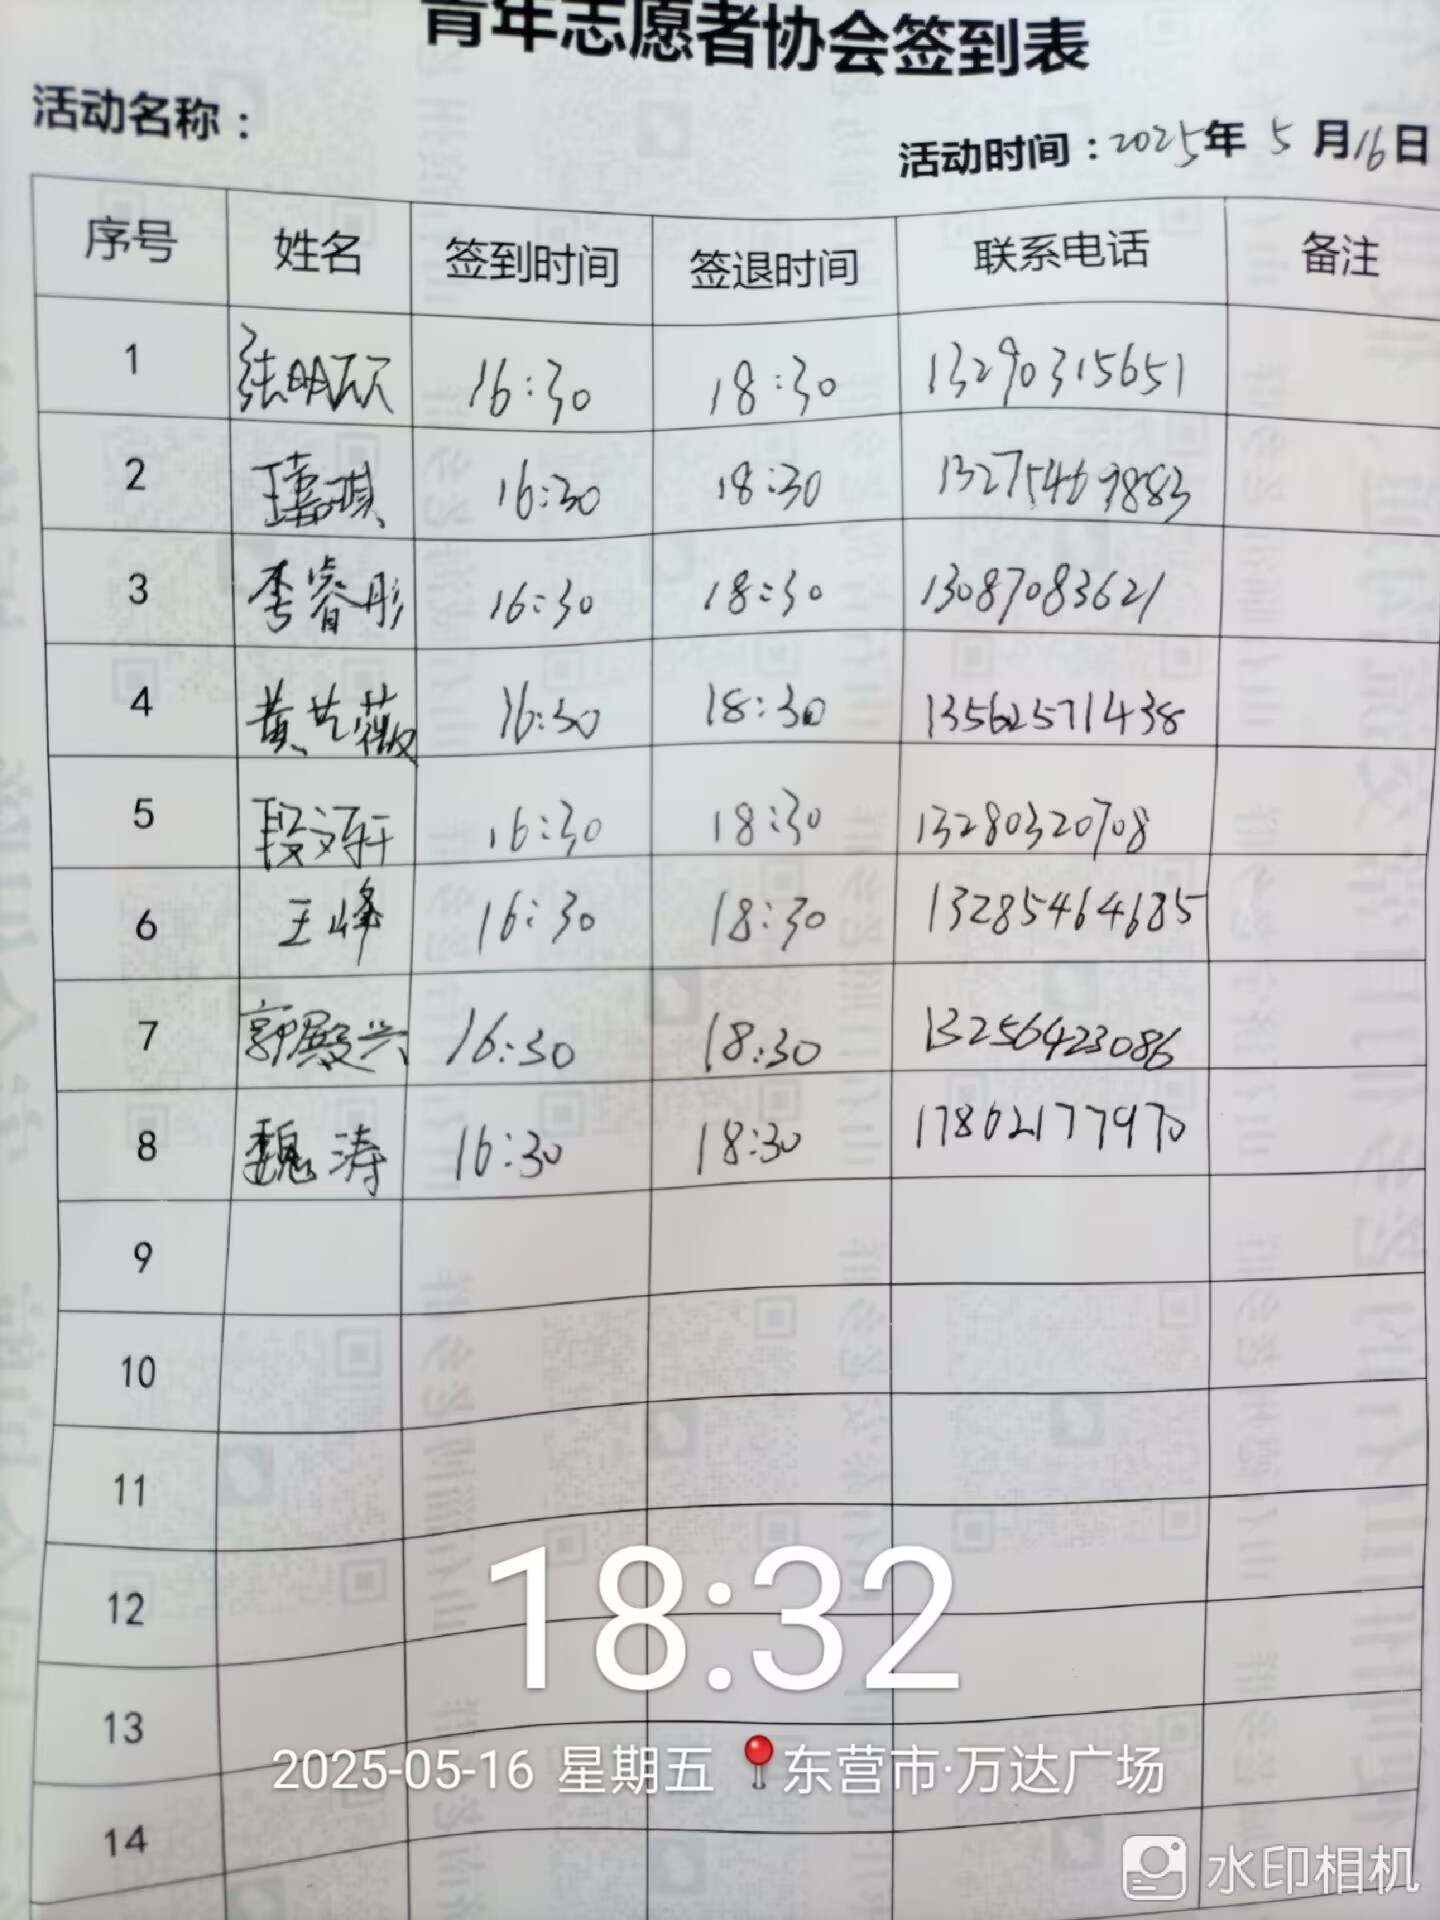 青年志愿者协会签到表
活动名称：
活动时间：2025年 5 月16日
序号 姓名 签到时间 签退时间 联系电话 备注
1 张明 16:30 18:30 13290315651
2 16:30 18:30 13275469883
3 李睿彤 16:30 18:30 13087083621
4 黄艺薇 16:30 18:30 13562571438
5 段文轩 16:30 18:30 13280320708
6 王峰 16:30 18:30 13285464685
7 郭殿兴 16:30 18:30 13256423086
8 魏涛 16:30 18:30 17802177970
9
10
11
12
13
14
18:32
2025-05-16 星期五 东营市·万达广场
水印相机